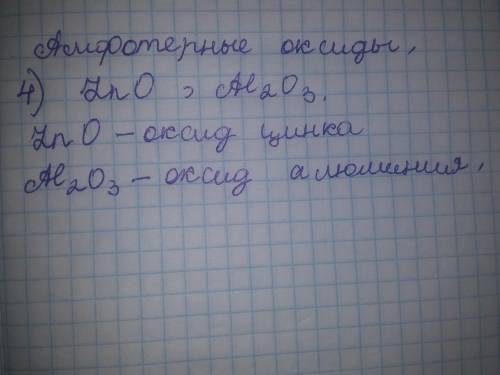 Амфотерные оксиды,
4) ZnO, Al₂O₃.
ZnO – оксид цинка
Al₂O₃ – оксид алюминия,